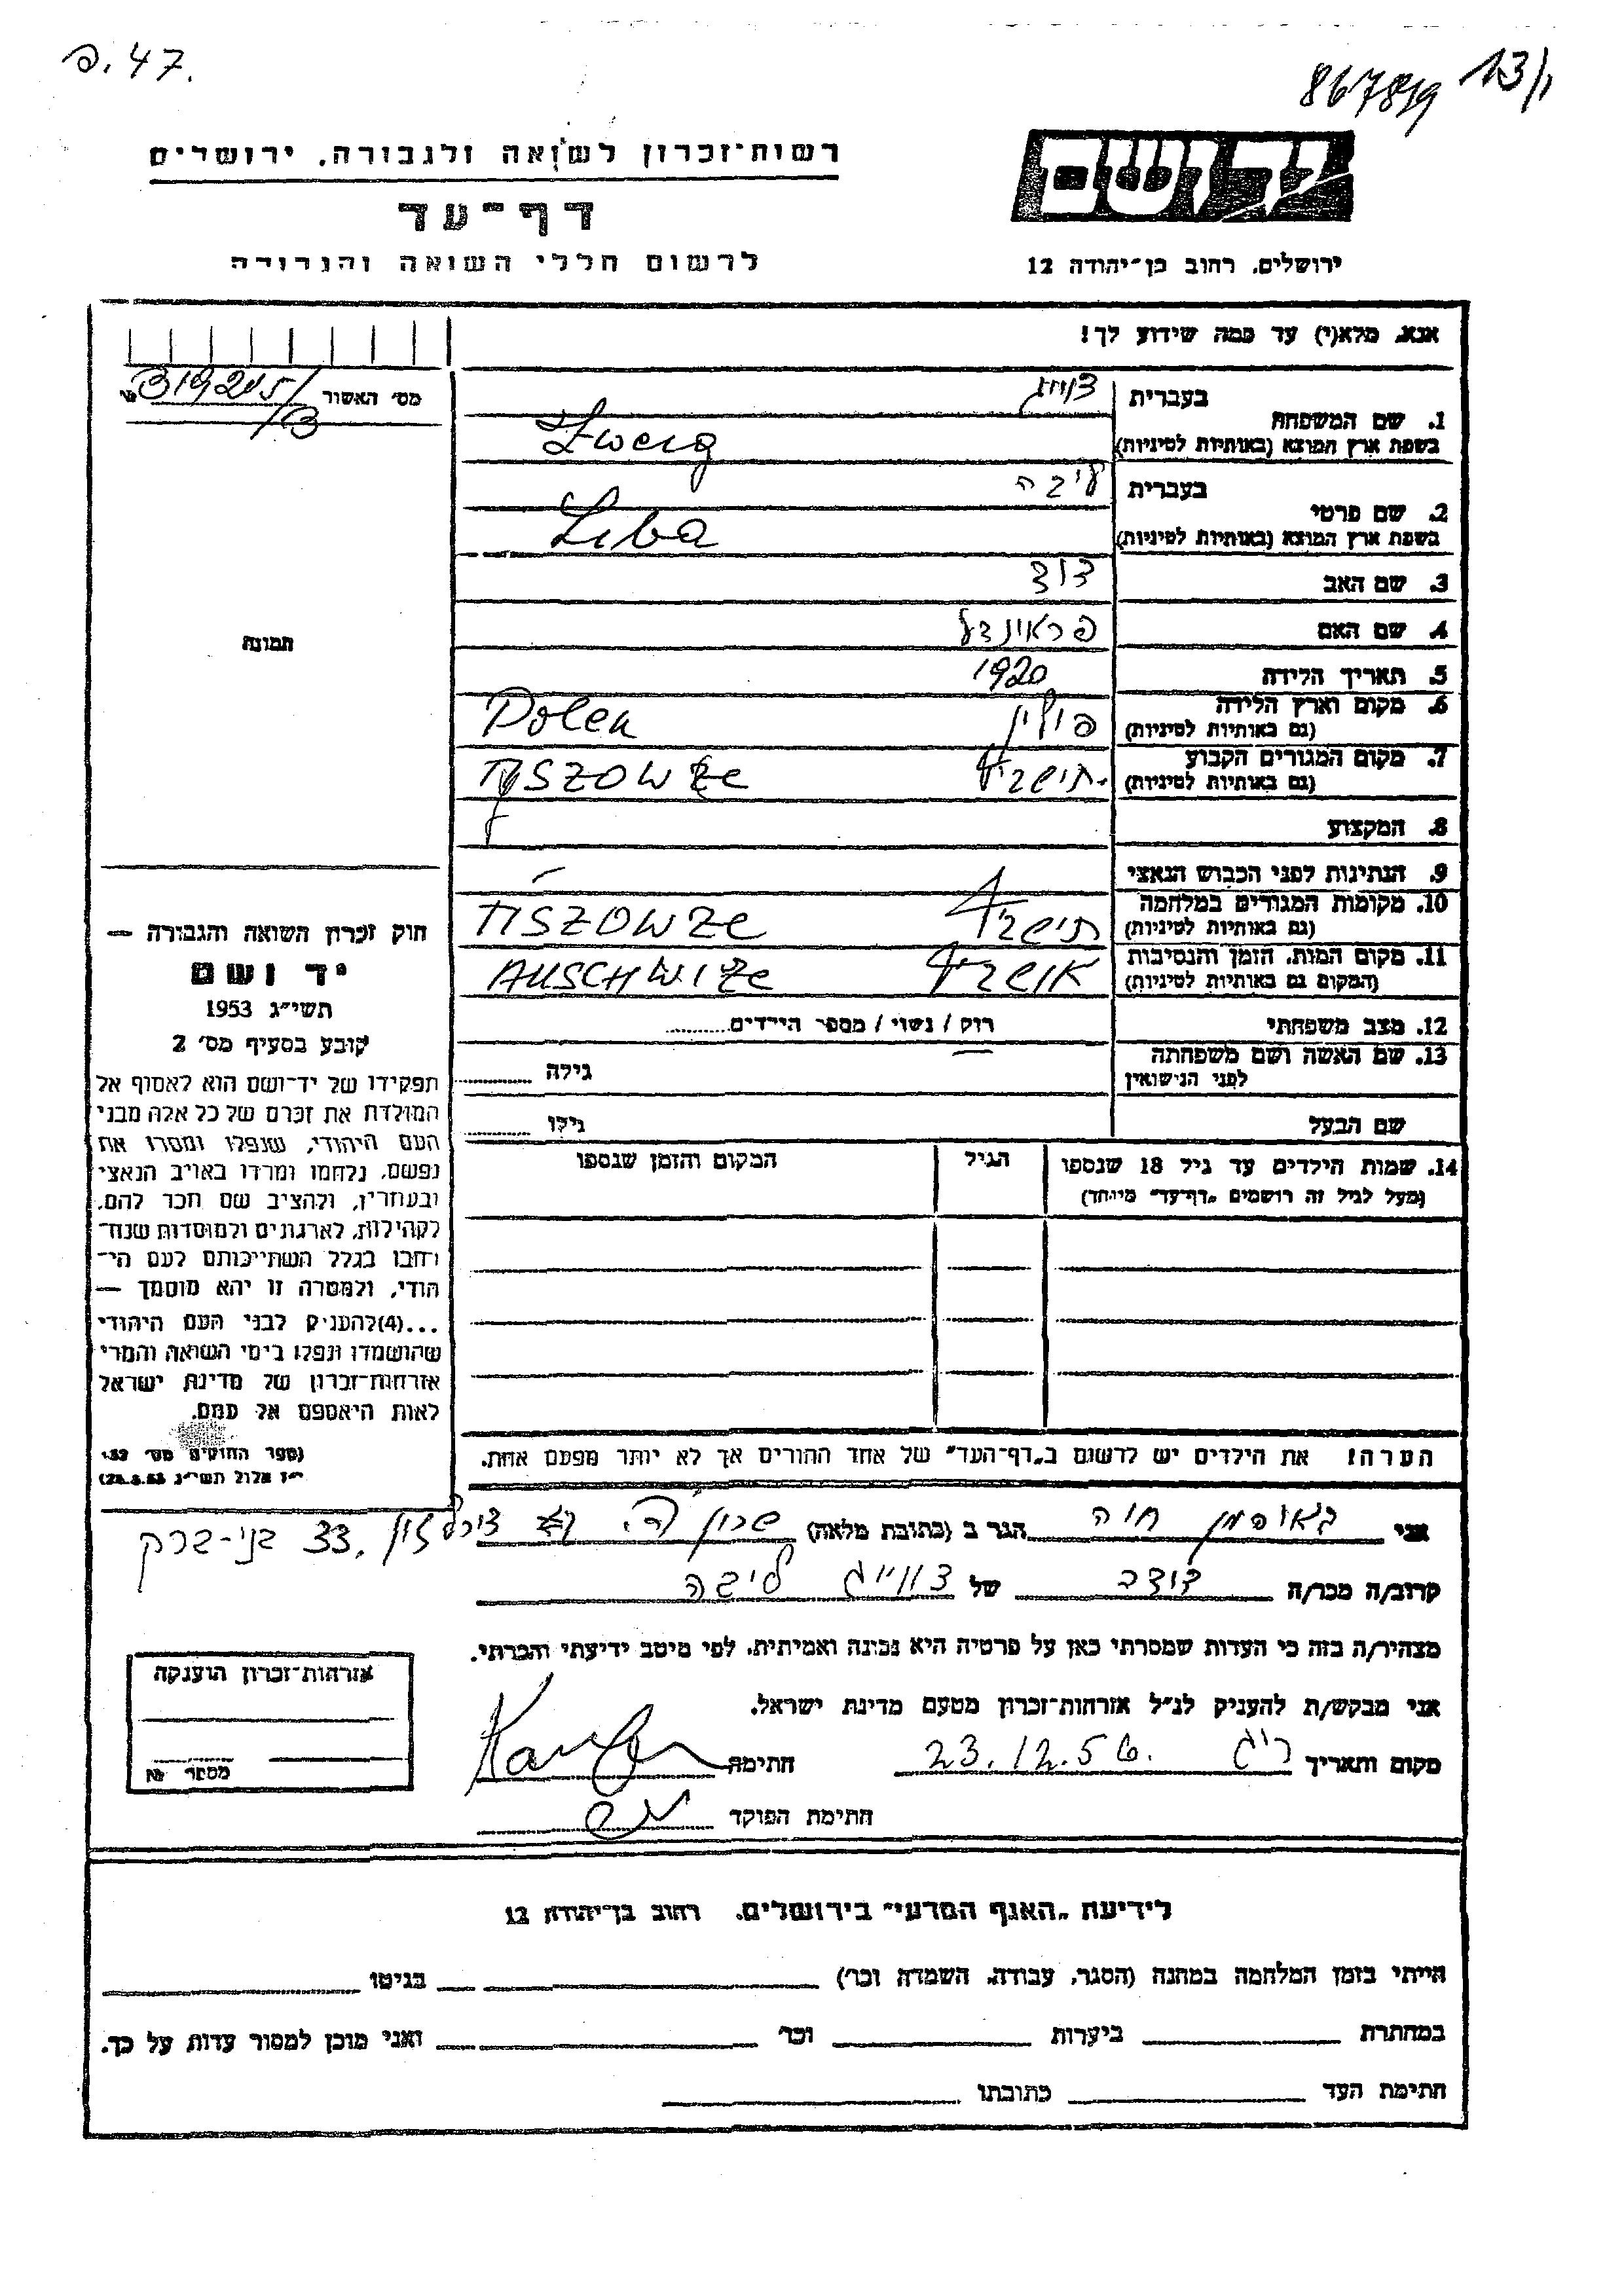 פ. 47.
867819 13/1
רשות־זכרון לשואה ולגבורה, ירושלים
דף־עד
לרשום חללי השואה והגבורה
יד ושם
ירושלים, רחוב בן־יהודה 12
אנא, מלא(י) עד כמה שידוע לך!
מס׳ האשור № 319205/
/13
1. שם המשפחה בעברית צווייג
בשפת ארץ המוצא (באותיות לטיניות) Zweig
2. שם פרטי בעברית ליבה
בשפת ארץ המוצא (באותיות לטיניות) Liba
3. שם האב דוד
4. שם האם
5. תאריך הלידה 1920
6. מקום וארץ הלידה פולין Polen
(גם באותיות לטיניות)
7. מקום המגורים הקבוע תישביץ TYSZOWZE
(גם באותיות לטיניות)
8. המקצוע
9. הנתינות לפני הכבוש הנאצי –
10. מקומות המגורים במלחמה תישביץ TISZOWZE
(גם באותיות לטיניות)
11. מקום המות, הזמן והנסיבות אושביץ AUSCHWIZE
(המקום גם באותיות לטיניות)
12. מצב משפחתי רווק / נשוי / מספר הילדים
13. שם האשה ושם משפחתה
לפני הנישואין גילה
שם הבעל גילו
14. שמות הילדים עד גיל 18 שנספו הגיל המקום והזמן שנספו
(מעל לגיל זה רושמים "דף־עד" מיוחד)
הערה! את הילדים יש לרשום ב"דף־העד" של אחד ההורים אך לא יותר מפעם אחת.
תמונה
חוק זכרון השואה והגבורה —
יד ושם
תשי״ג 1953
קובע בסעיף מס׳ 2
תפקידו של יד־ושם הוא לאסוף אל
המולדת את זכרם של כל אלה מבני
העם היהודי, שנפלו ומסרו את
נפשם, נלחמו ומרדו באויב הנאצי
ובעוזריו, ולהציב שם וזכר להם,
לקהילות, לארגונים ולמוסדות שנח־
רבו בגלל השתייכותם לעם הי־
הודי, ולמטרה זו יהא מוסמך —
...(4) להעניק לבני העם היהודי
שהושמדו ונפלו בימי השואה והמרי
אזרחות־זכרון של מדינת ישראל
לאות היאספם אל עמם.
(ספר החוקים מס׳ 132,
י״ז אלול תשי״ג 28.8.53)
אני חוה הגר ב (כתובת מלאה) 33 בני-ברק
קרוב/ה מכר/ה דודה של צווייג ליבה
מצהיר/ה בזה כי העדות שמסרתי כאן על פרטיה היא נכונה ואמיתית, לפי מיטב ידיעתי והכרתי.
אני מבקש/ת להעניק לנ״ל אזרחות־זכרון מטעם מדינת ישראל.
מקום ותאריך ר״ג 23.12.56 חתימה
חתימת הפוקד
אזרחות־זכרון הוענקה
מספר №
לידיעת "האגף המדעי" בירושלים, רחוב בן־יהודה 12
הייתי בזמן המלחמה במחנה (הסגר, עבודה, השמדה וכו׳) בגיטו
במחתרת ביערות וכו׳ ואני מוכן למסור עדות על כך.
חתימת העד כתובתו